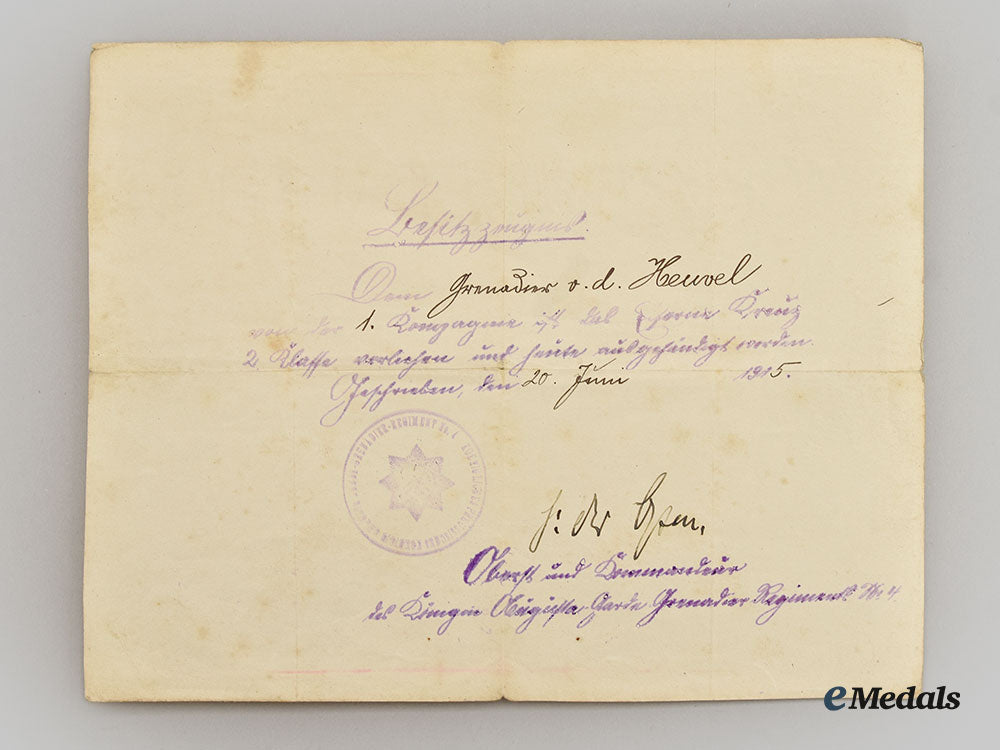 Besitzzeugnis.
Dem Grenadier v. d. Heuvel
von der 1. Kompagnie ist das Eiserne Kreuz
2. Klasse verliehen und heute ausgehändigt worden.
Geschrieben, den 20. Juni 1915.
GRENADIER-REGIMENT No. 4
Oberst und Kommandeur
des Königin Augusta-Garde Grenadier Regiments Nr. 4
eMedals